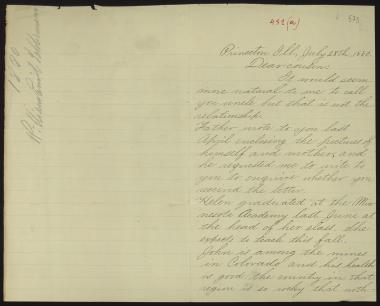 1880
432(a)
573
Princeton Ill, July 28th, 1880.
Dear cousin:
It would seem
more natural to me to call
you uncle but that is not the
relationship.
Father wrote to you last
April enclosing the pictures of
himself and mother, and
he requested me to write to
you to enquire whether you
received the letter.
Helen graduated at the Min
nesota Academy last June at
the head of her class. She
expects to teach this fall.
John is among the mines
in Colorado and his health
is good the country in that
region is so rocky that with